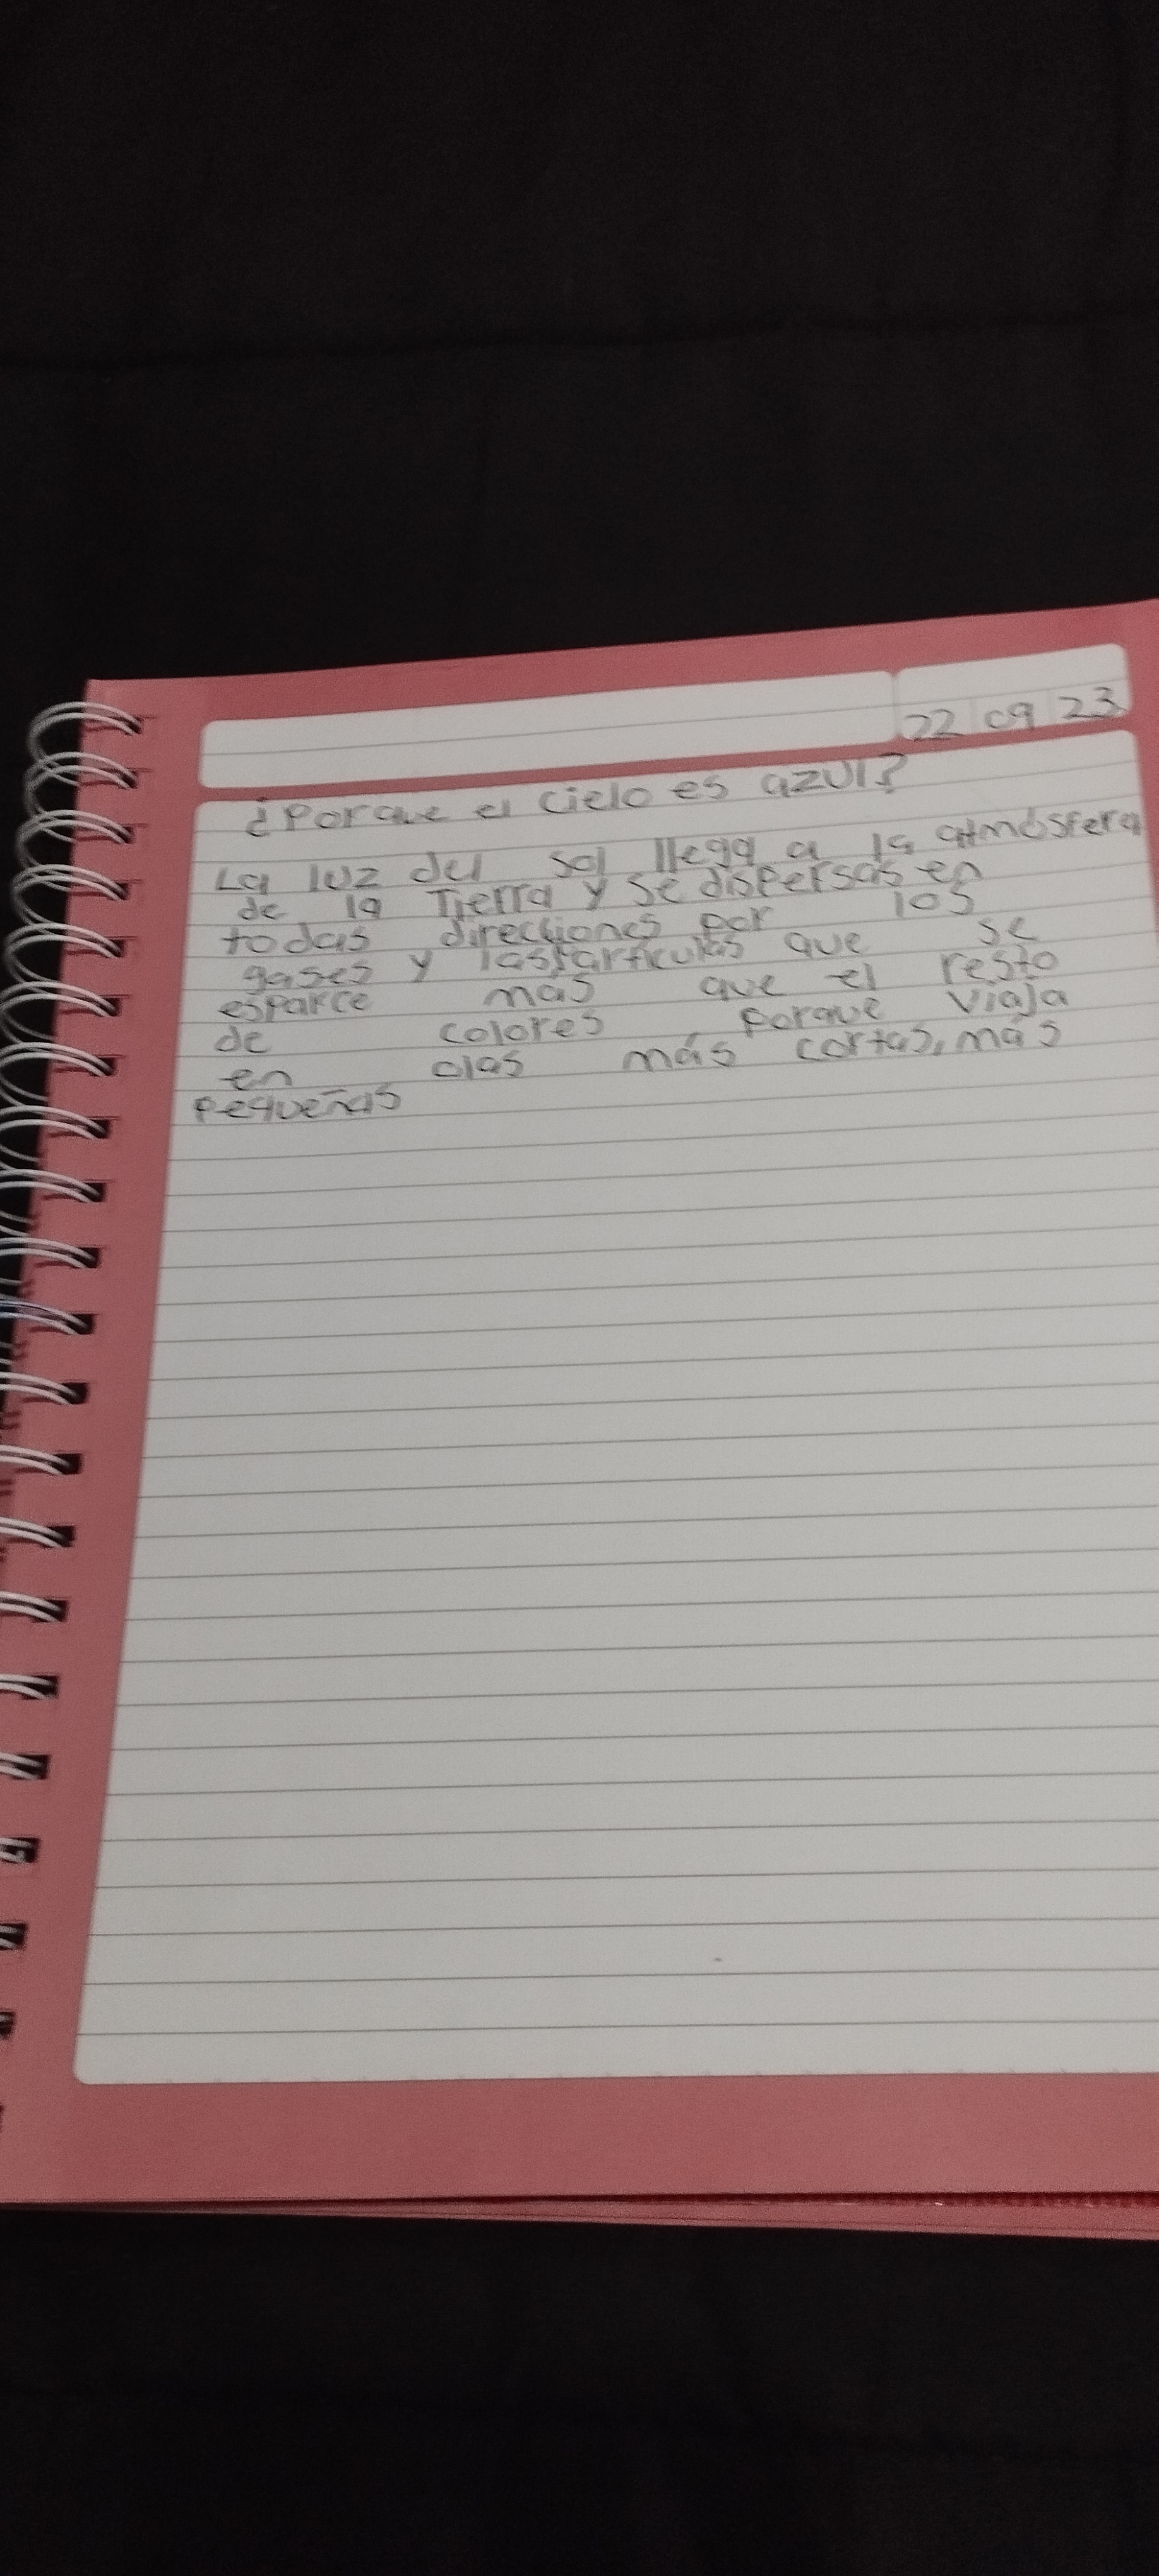 22 09 23
¿Porque el cielo es azul?
La luz del sol llega a la atmósfera
de la Tierra y se dispersas en
todas direcciones por los
gases y las partículas que se
esparce mas que el resto
de colores porque viaja
en olas más cortas, más
pequeñas